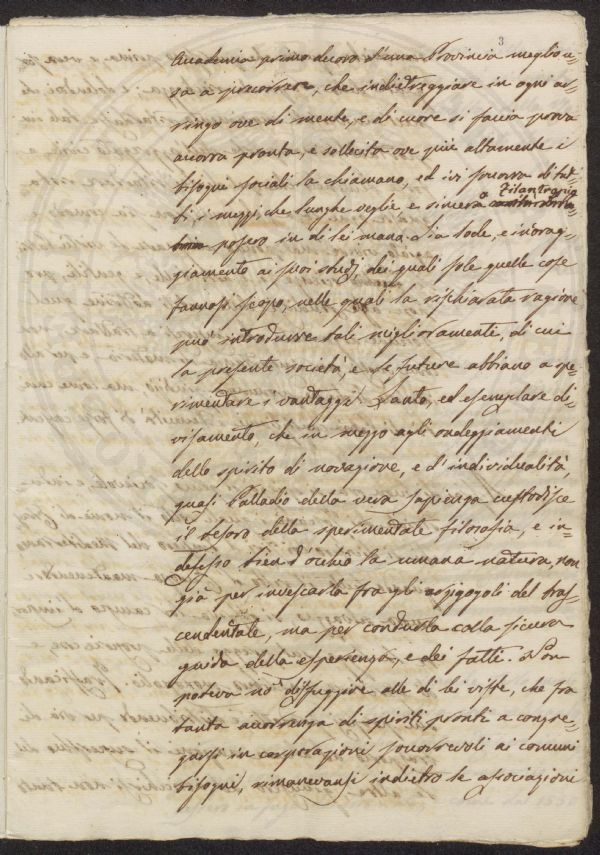 3
Academia primo decoro d'una Provincia meglio u-
sa a precorrere, che indietreggiare in ogni ar-
ringo ove di mente, e di cuore si faccia prova
accorra pronta, e sollecita ove più altamente i
bisogni sociali la chiamano, ed ivi soccorra di tut-
ti i mezzi, che lunghe veglie e sincera Filantropia
posero in di lei mano. Sia lode, e incorag-
giamento ai suoi studj, dei quali sole quelle cose
fannosi scopo, nelle quali la rischiarata ragione
può introdurre tali miglioramenti, di cui
la presente società, e le future abbiano a spe-
rimentare i vantaggi. Santo, ed esemplare di-
visamento, che in mezzo agli ondeggiamenti
dello spirito di novazione, e d'individualità,
quasi Palladio della vera sapienza custodisce
il tesoro della sperimentale filosofia, e in-
defesso tien d'occhio la umana natura, non
già per invescarla fra gli arzigogoli del tras-
cendentale, ma per condurla colla sicura
guida della esperienza, e dei fatti. Non
poteva no' disfuggire alle di lei viste, che fra
tanta accorrenza di spiriti pronti a congre-
garsi in corporazioni soccorrevoli ai comuni
bisogni, rimanevansi indietro le associazioni